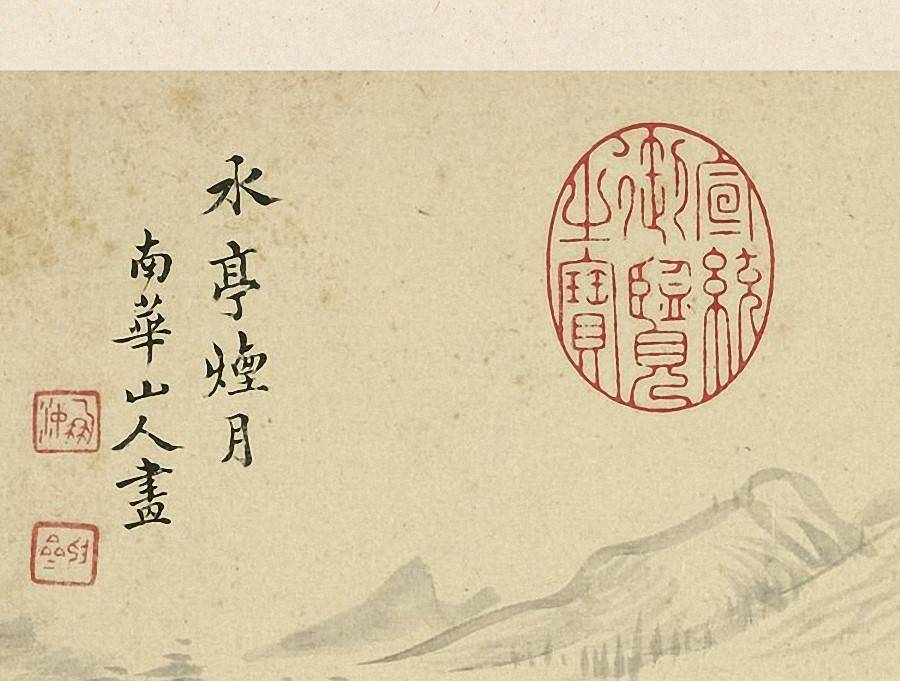 宣統
御覽
之寶
水亭煙月
南華山人畫